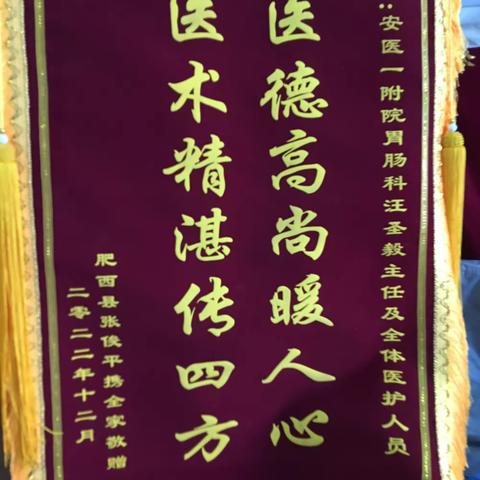 :安医一附院胃肠科汪圣毅主任及全体医护人员
医德高尚暖人心
医术精湛传四方
肥西县张俊平携全家敬赠
二零二二年十二月